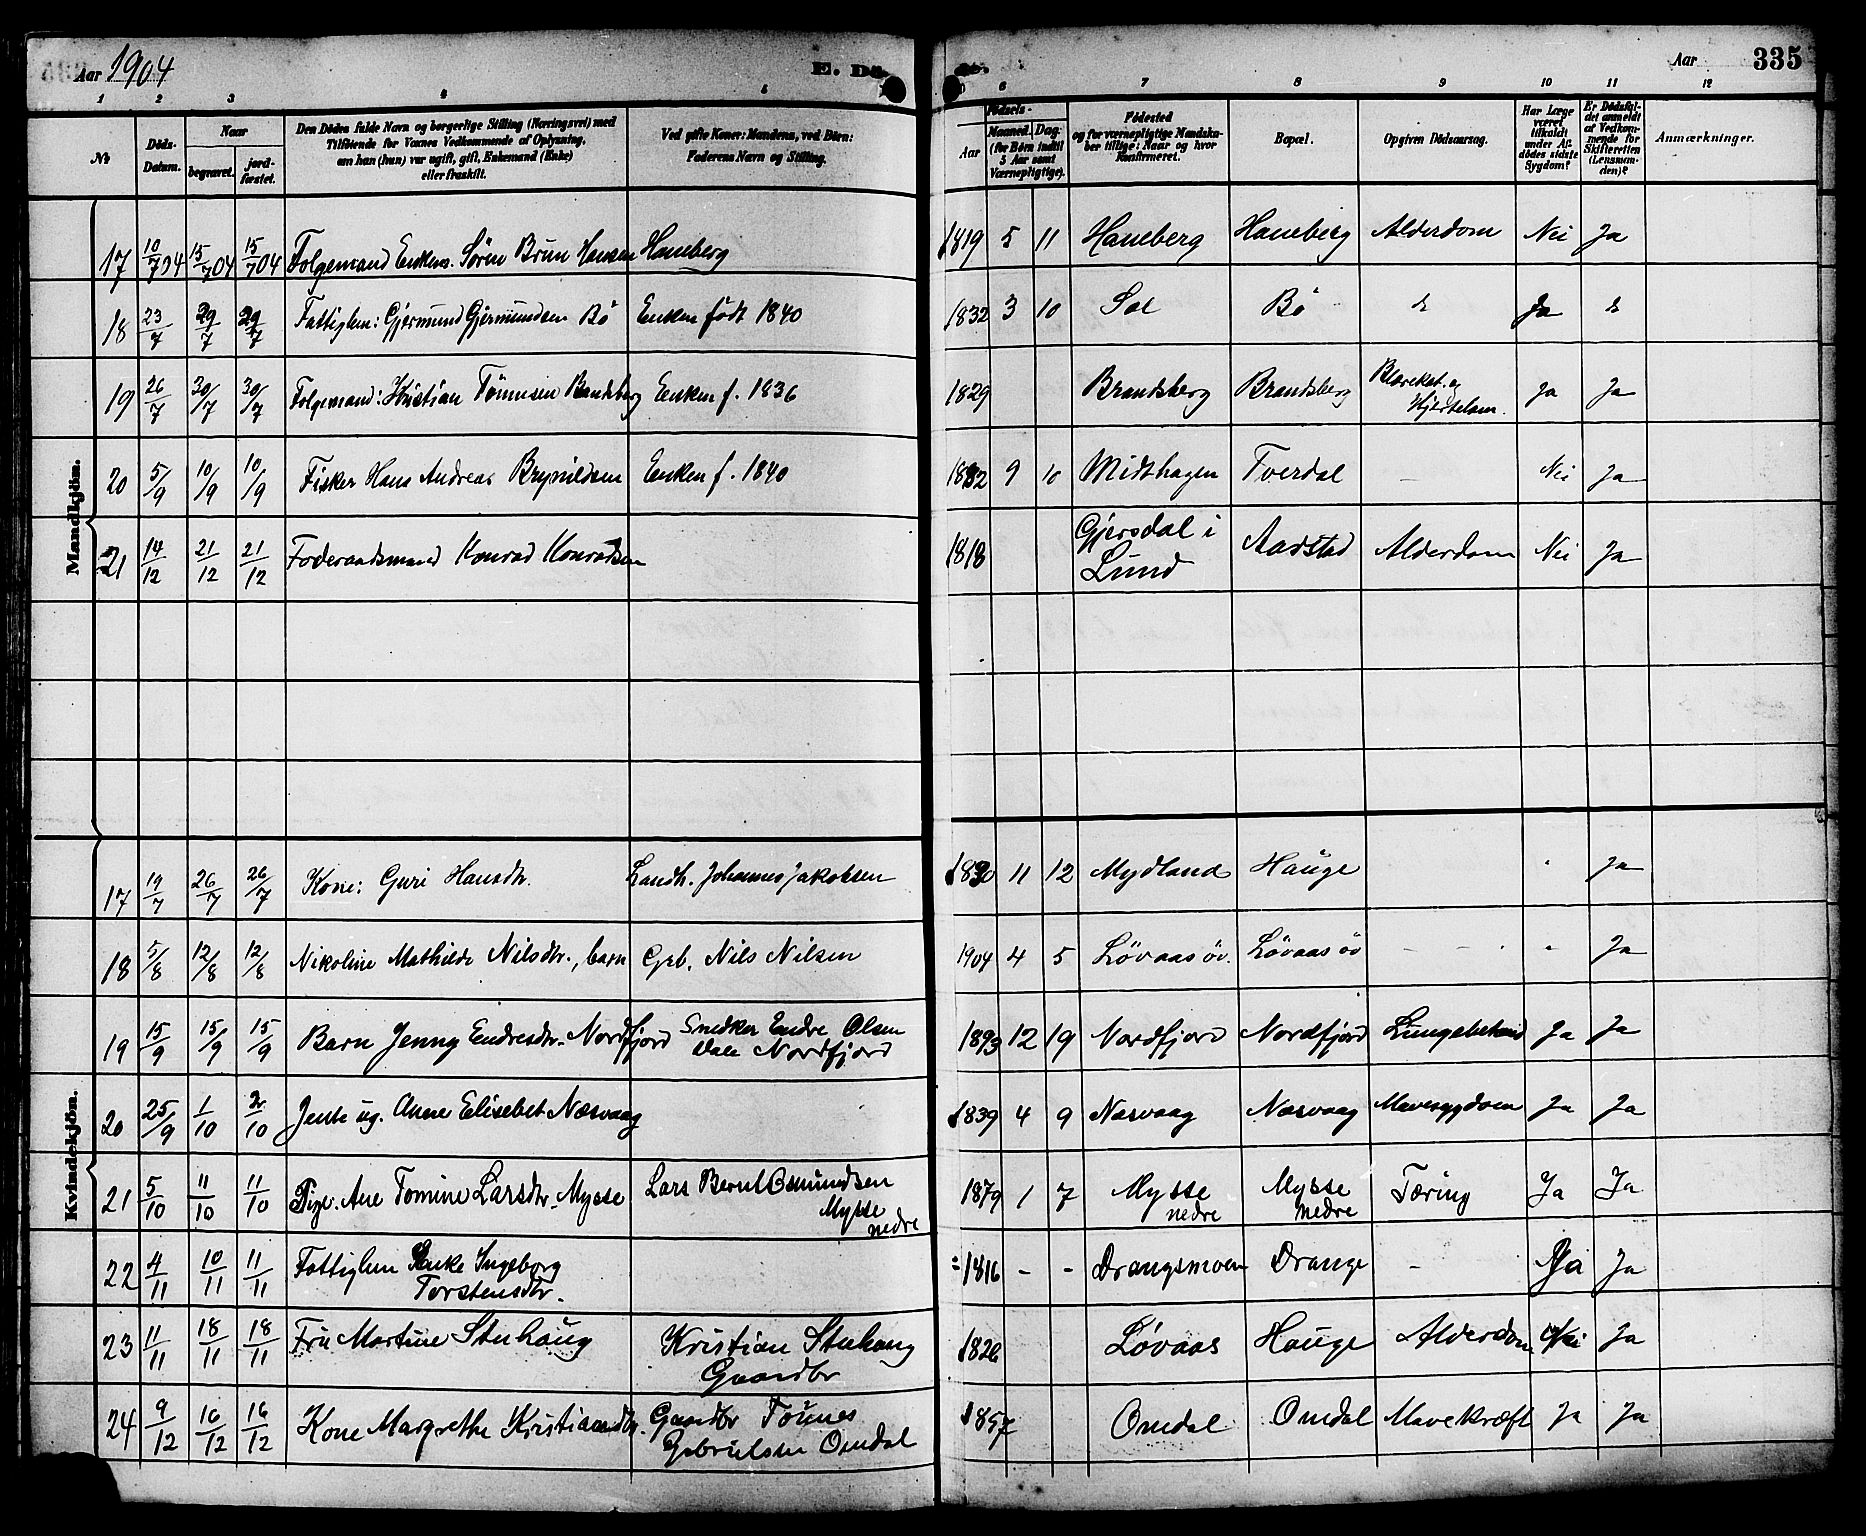 Aar 1904
E. Dö
de.
Aar
335
1 2 3 4 5 6 7 8 9 10 11 12
No
Döds-Datum.
Naar
begravet.
jord-fæstet.
Den Dödes fulde Navn og borgerlige Stilling (Næringsvei) med
Tilföiende for Voxnes Vedkommende af Oplysning,
om han (hun) var ugift, gift, Enkemand (Enke)
eller fraskilt.
Ved gifte Koner: Mandens, ved Börn:
Faderens Navn og Stilling.
Födsels-
Aar
Maaned. Dag.
(for Börn indtil
5 Aar samt
Værnepligtige).
Födested
og for værnepligtige Mandska-
ber tillige: Naar og hvor
Konfirmeret.
Bopæl.
Opgiven Dödsaarsag.
Har Læge
været
tilkaldt
under Af-
dödes sidste
Sygdom?
Er Dödsfal-
det anmeldt
af Vedkom-
mende for
Skifteretten
(Lensman-
den)?
Anmærkninger.
Mandkjön.
17 10/7 04 15/7 04 15/7 04 Folgemand Enkem. Sørin Brun Hansen Haneberg 1819 5 11 Haneberg Haneberg Alderdom Nei Ja
18 23/7 29/7 29/7 Fattiglem: Gjermund Gjermundsen Bö Enken født 1840 1832 3 10 Sæl Bö Ja
19 26/7 30/7 30/7 Folgemand: Kristian Tönnesen Brandsberg Enken f. 1836 1829 Brandsberg Brandsberg Blærekat. og Hjertelam. Ja Ja
20 5/9 10/9 10/9 Fisker Hans Andreas Brynildsen Enken f. 1840 1832 9 10 Midthagen Tverdal – Nei Ja
21 14/12 21/12 21/12 Foderaadsmand Konrad Konradsen 1818 Gjersdal i Lund Aarstad Alderdom Nei Ja
Kvindekjön.
17 19/7 26/7 26/7 Kone: Guri Hansdtr. Landh. Johannes Jakobsen 1830 11 12 Mydland Hauge Ja
18 5/8 12/8 12/8 Nikoline Mathilde Nilsdtr., barn Grb. Nils Nilsen 1904 4 5 Lövaas öv. Lövaas öv – – Ja
19 15/9 15/9 15/9 Barn Jenny Endresdtr. Nordfjord Snedker Endre Olsen Dale Nordfjord 1893 12 19 Nordfjord Nordfjord Lungebetænd Ja Ja
20 25/9 1/10 2/10 Jente ug. Anne Elisebet Næsvaag 1839 4 9 Næsvaag Næsvaag Mavesygdom Ja Ja
21 5/10 11/10 11/10 Pige. Ane Tomine Larsdtr. Mysse Lars Bernt Osmundsen Mysse nedre 1879 1 7 Mysse nedre Mysse nedre Tæring Ja Ja
22 4/11 10/11 11/11 Fattiglem Enke Ingeborg Torstensdtr. 1816 – – Drangsmoen Drange – Ja Ja
23 11/11 18/11 18/11 Fru Martine Stenhaug Kristian Stenhaug Gaardbr 1826 Lövaas Hauge Alderdom Nei Ja
24 9/12 16/12 16/12 Kone Margrethe Kristiansdtr. Gaardbr Tönnes Gabrielsen Omdal 1857 Omdal Omdal Mavekræft Ja Ja